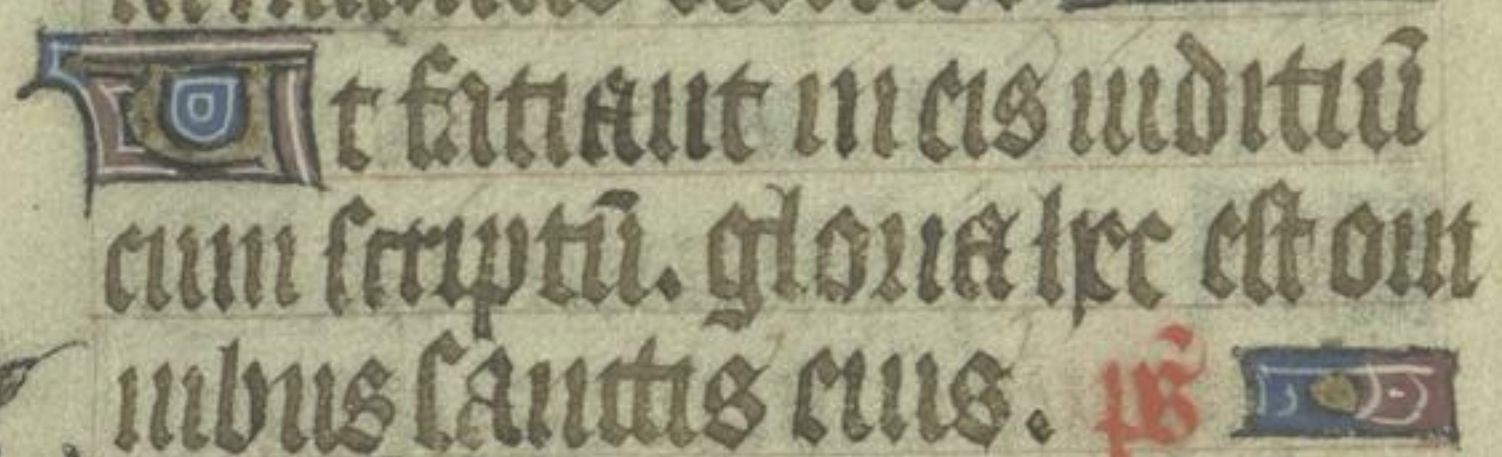 Ut fatiant in eis iuditiū
cum scriptū. gloria hec est om
nibus sanctis eius. ps̄